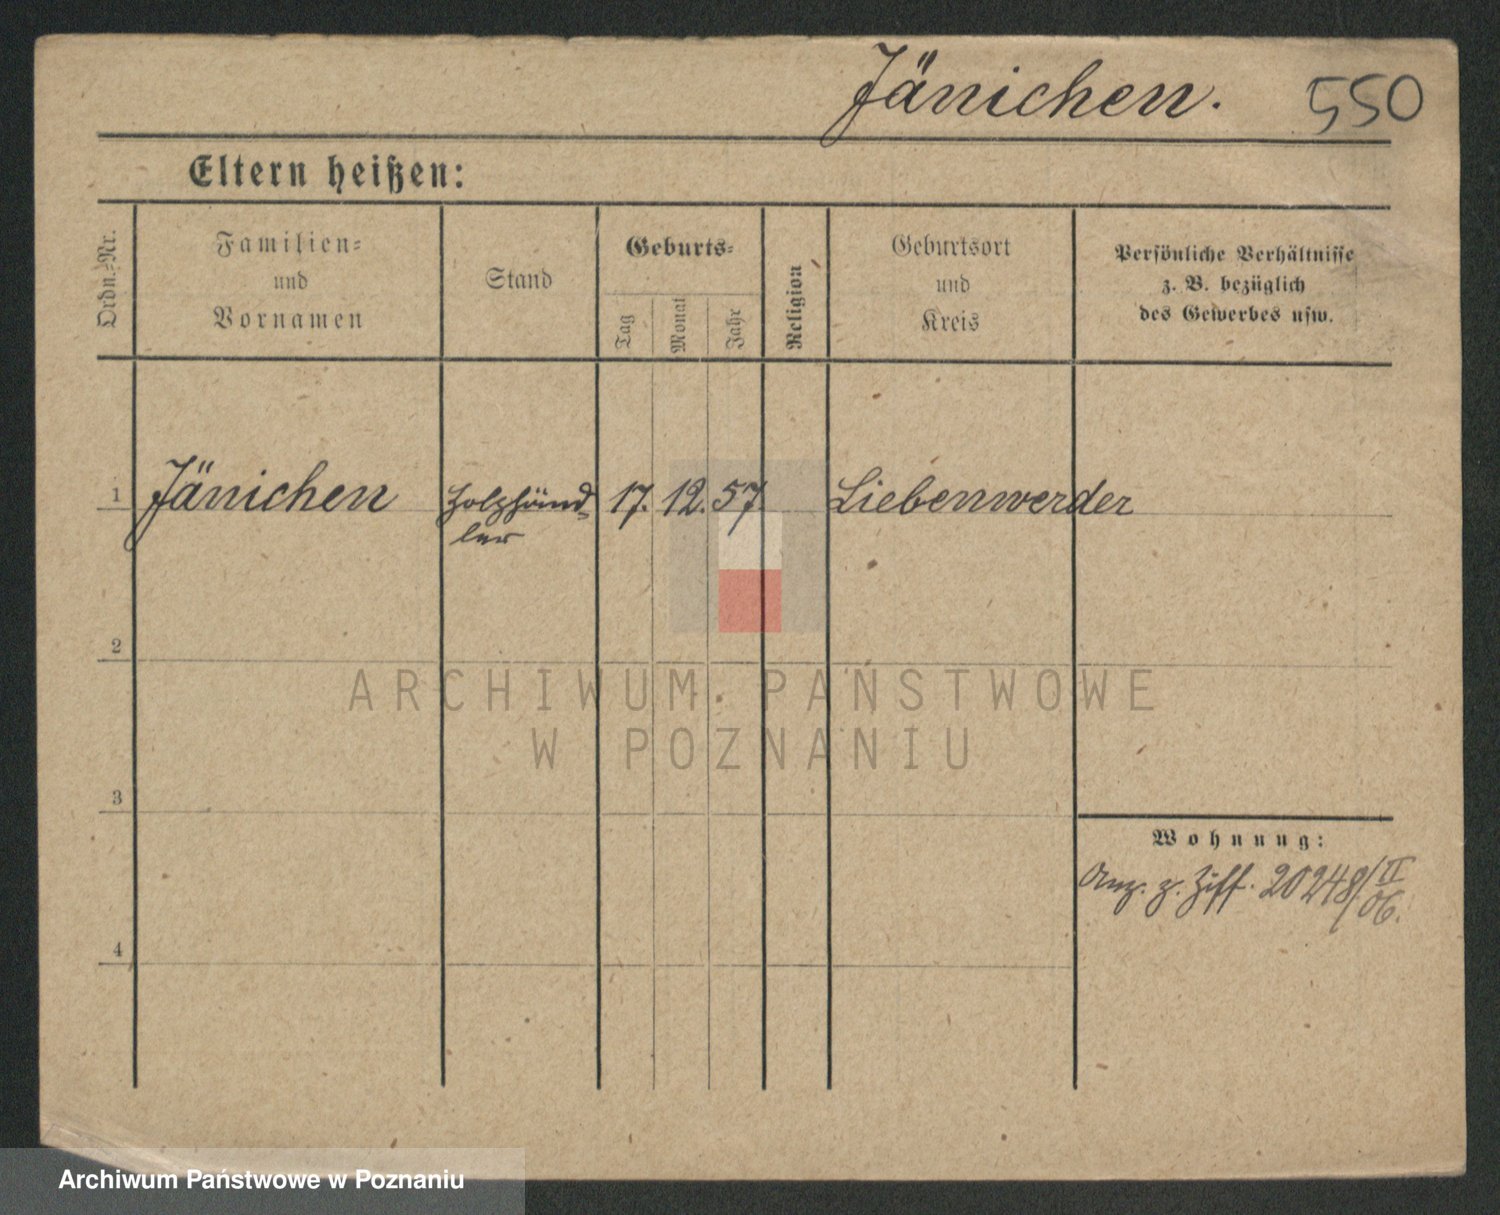 Jänichen. 550
Eltern heißen:
Ordn.-Nr.
Familien-
und
Vornamen
Stand
Geburts-
Tag
Monat
Jahr
Religion
Geburtsort
und
Kreis
Persönliche Verhältnisse
z. B. bezüglich
des Gewerbes usw.
1 Jänichen Holzhänd- 17. 12. 57 Liebenwerder
ler
2
ARCHIWUM PAŃSTWOWE
W POZNANIU
3
Wohnung:
Anz. z. Ziff. 20248/II
06.
4
Archiwum Państwowe w Poznaniu